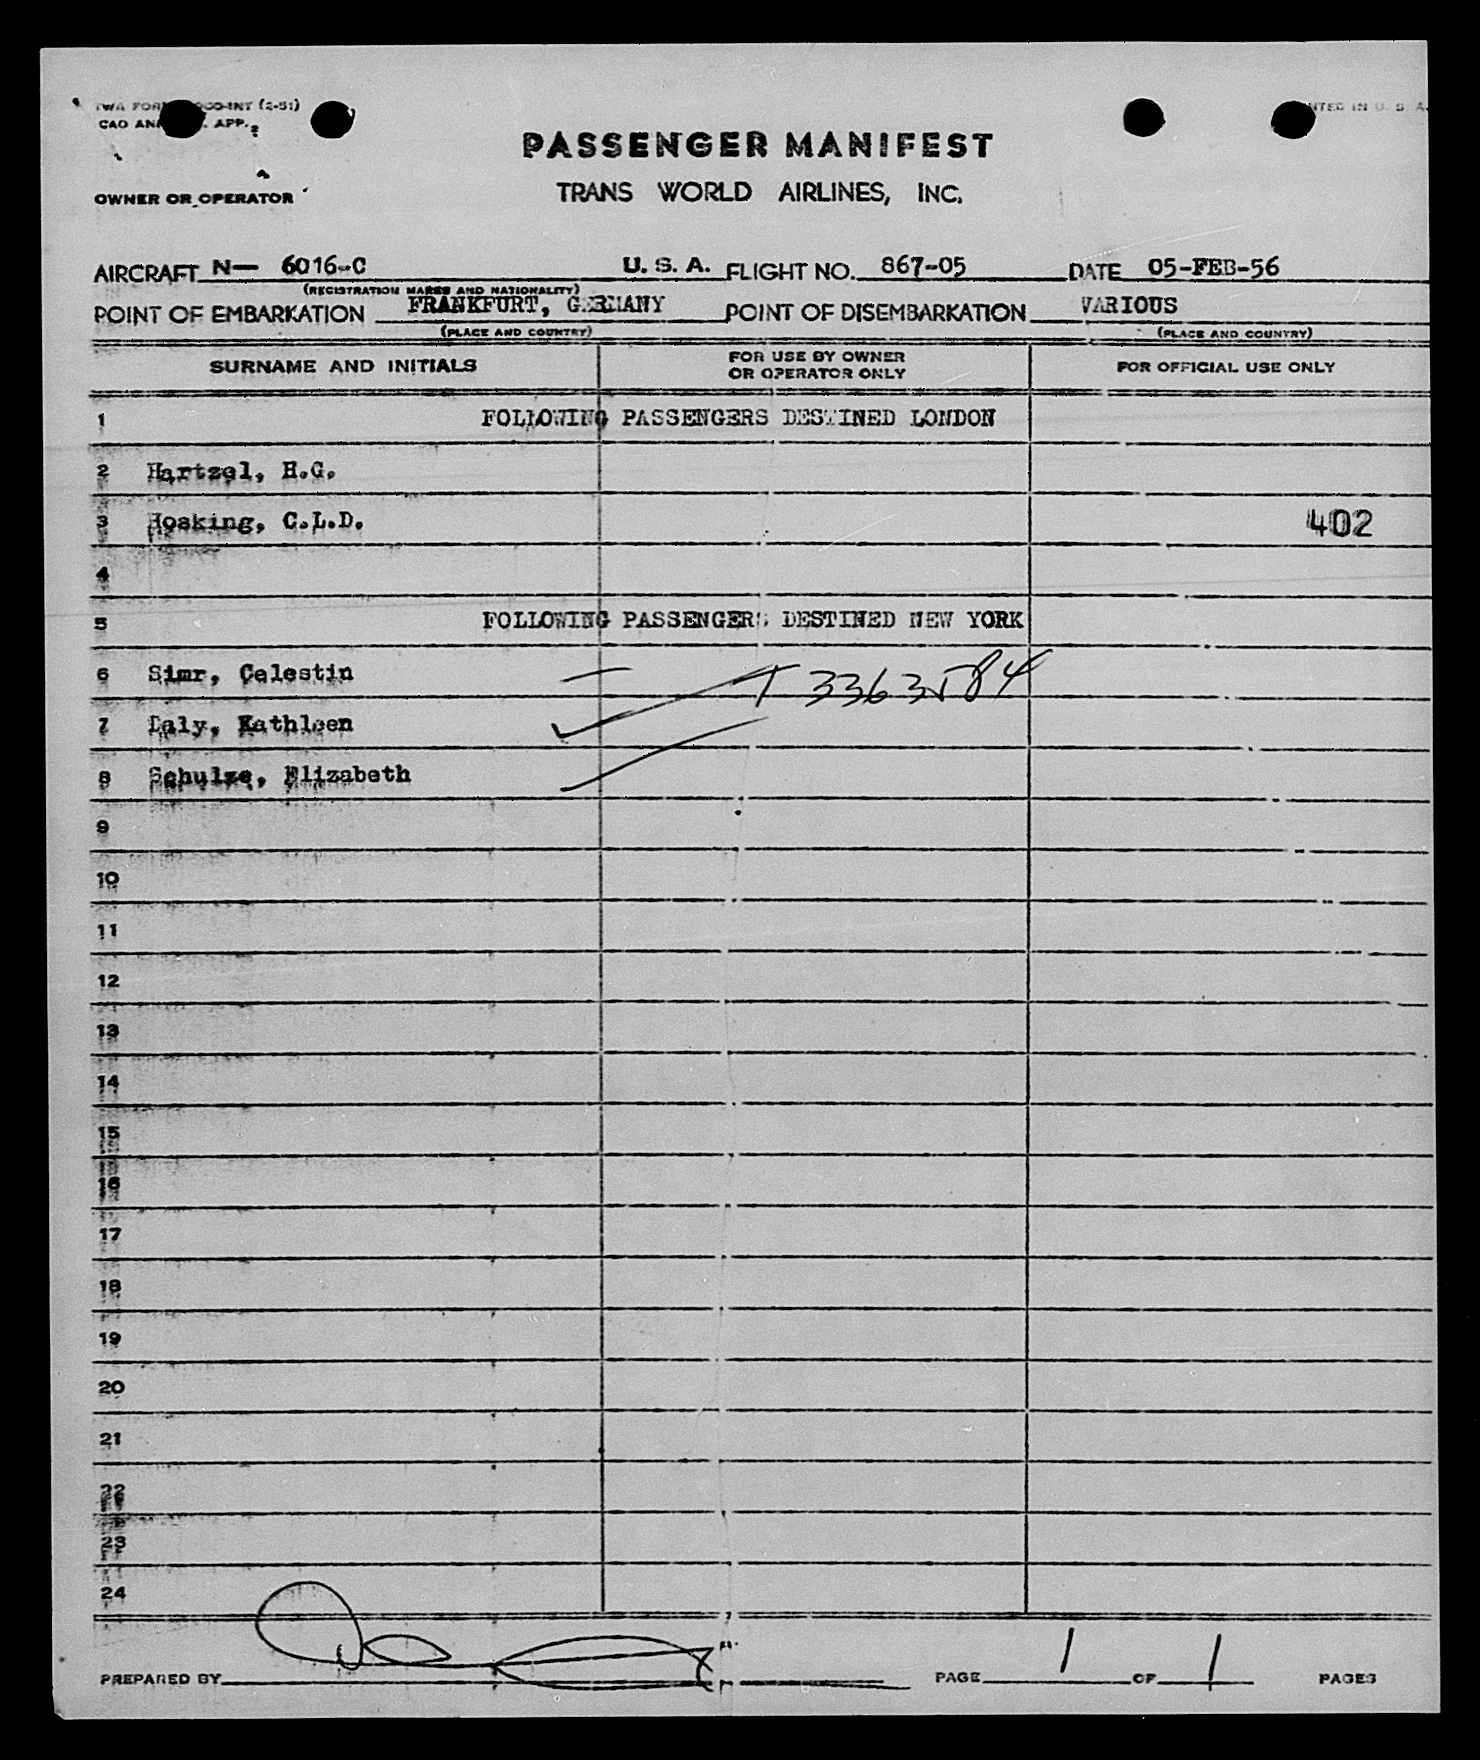 TWA FORM OOO-INT (2-51)
PRINTED IN U. S. A.
CAO APP.
PASSENGER MANIFEST
OWNER OR OPERATOR
TRANS WORLD AIRLINES, INC.
AIRCRAFT N— 6016-C U. S. A. FLIGHT NO. 867-05 DATE 05-FEB-56
(REGISTRATION MARKS AND NATIONALITY)
POINT OF EMBARKATION FRANKFURT, GERMANY POINT OF DISEMBARKATION VARIOUS
(PLACE AND COUNTRY) (PLACE AND COUNTRY)
SURNAME AND INITIALS FOR USE BY OWNER OR OPERATOR ONLY FOR OFFICIAL USE ONLY
1 FOLLOWING PASSENGERS DESTINED LONDON
2 Hartzel, H.G.
3 Hosking, C.L.D. 402
4
5 FOLLOWING PASSENGERS DESTINED NEW YORK
6 Simr, Celestin T 3363584
7 Daly, Kathleen
8 Schulze, Elizabeth
9
10
11
12
13
14
15
16
17
18
19
20
21
22
23
24
PREPARED BY PAGE 1 OF 1 PAGES